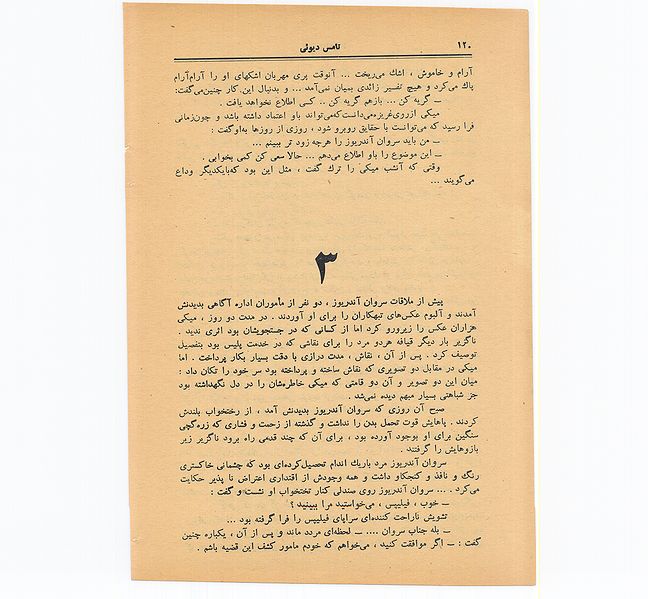 ۱۲۰
تامس دیوئی
آرام و خاموش ، اشك می‌ریخت ... آنوقت پری مهربان اشكهای او را آرام‌آرام
پاك می‌كرد و هیچ تفسیر زائدی بمیان نمی‌آمد ... و بدنبال این كار چنین‌می‌گفت:
ـ گریه كن ... بازهم گریه كن .. كسی اطلاع نخواهد یافت .
میكی ازروی‌غریزه‌می‌دانست‌كه‌می‌تواند باو اعتماد داشته باشد و چون‌زمانی
فرا رسید كه می‌توانست با حقایق روبرو شود ، روزی از روزها به‌اوگفت :
ـ من باید سروان آندریوز را هرچه زود تر ببینم ...
ـ این موضوع را باو اطلاع می‌دهم ... حالا سعی كن كمی بخوابی .
وقتی كه آنشب میكی را ترك گفت ، مثل این بود كه‌بایكدیگر وداع
می‌گویند ...
۳
پیش از ملاقات سروان آندریوز ، دو نفر از مأموران اداره آگاهی بدیدنش
آمدند و آلبوم عكس‌های تبهكاران را برای او آوردند . در مدت دو روز ، میكی
هزاران عكس را زیرورو كرد اما از كسانی كه در جستجویشان بود اثری ندید .
ناگزیر بار دیگر قیافه هردو مرد را برای نقاشی كه در خدمت پلیس بود بتفصیل
توصیف كرد . پس از آن ، نقاش ، مدت درازی با دقت بسیار بكار پرداخت . اما
میكی در مقابل دو تصویری كه نقاش ساخته و پرداخته بود سر خود را تكان داد :
میان این دو تصویر و آن دو قامتی كه میكی خاطره‌شان را در دل نگهداشته بود
جز شباهتی بسیار مبهم دیده نمی‌شد .
صبح آن روزی كه سروان آندریوز بدیدنش آمد ، از رختخواب بلندش
كردند . پاهایش قوت تحمل بدن را نداشت و گذشته از زحمت و فشاری كه زره‌گچی
سنگین برای او بوجود آورده بود ، برای آن كه چند قدمی راه برود ناگزیر زیر
بازوهایش را گرفتند .
سروان آندریوز مرد باریك اندام تحصیل‌كرده‌ای بود كه چشمانی خاكستری
رنگ و نافذ و كنجكاو داشت و همه وجودش از اقتداری اعتراض نا پذیر حكایت
می‌كرد ... سروان آندریوز روی صندلی كنار تختخواب او نشست و گفت :
ـ خوب ، فیلیپس ، می‌خواستید مرا ببینید ؟
تشویش ناراحت كننده‌ای سراپای فیلیپس را فرا گرفته بود ...
ـ بله جناب سروان .... ـ لحظه‌ای مردد ماند و پس از آن ، یكباره چنین
گفت : ـ اگر موافقت كنید ، می‌خواهم كه خودم مامور كشف این قضیه باشم .